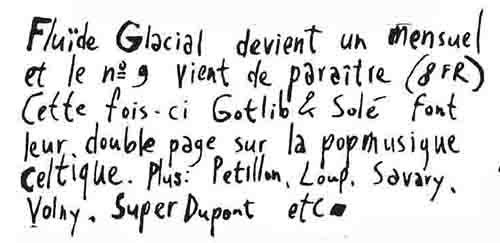 Fluïde Glacial devient un mensuel
et le nº 9 vient de paraître (8 FR)
Cette fois-ci Gotlib & Solé font
leur double page sur la popmusique
celtique. Plus: Petillon, Loup, Savary,
Volny, Super Dupont etc.